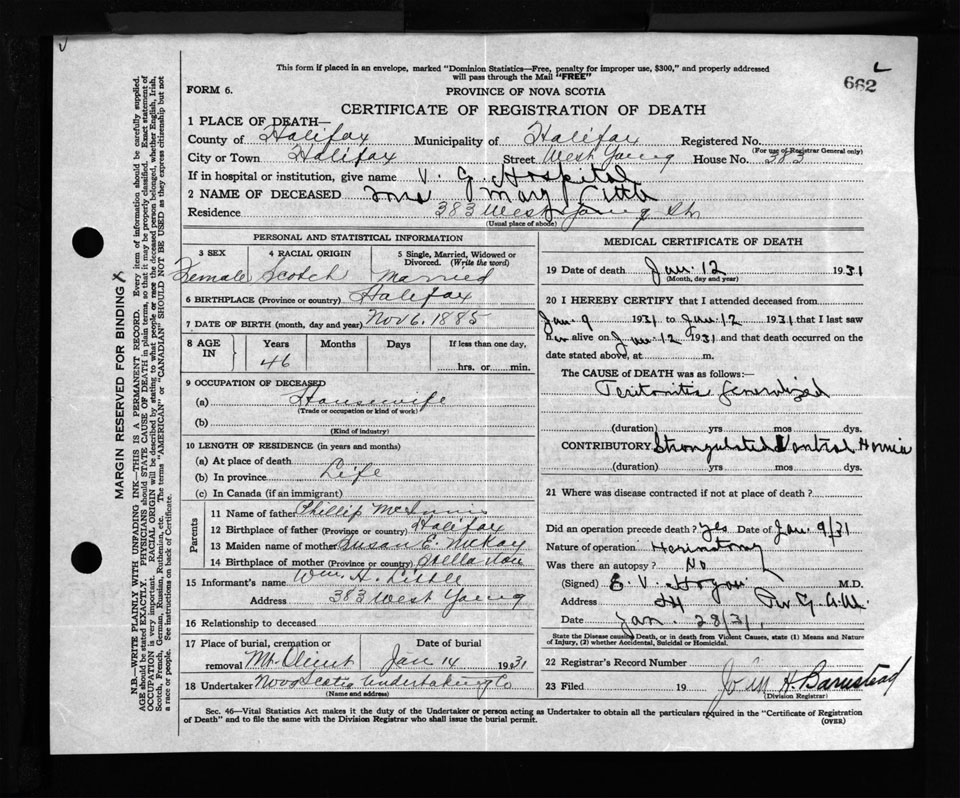 This form if placed in an envelope, marked "Dominion Statistics—Free, penalty for improper use, $300," and properly addressed
will pass through the Mail "FREE"
662
FORM 6.
PROVINCE OF NOVA SCOTIA
CERTIFICATE OF REGISTRATION OF DEATH
1 PLACE OF DEATH—
County of Halifax Municipality of Halifax Registered No.
(For use of Registrar General only)
City or Town Halifax Street West Young House No. 383
If in hospital or institution, give name V. G. Hospital
2 NAME OF DECEASED Mrs Mary Little
Residence 383 West Young St
(Usual place of abode)
PERSONAL AND STATISTICAL INFORMATION
3 SEX 4 RACIAL ORIGIN 5 Single, Married, Widowed or Divorced. (Write the word)
Female Scotch Married
6 BIRTHPLACE (Province or country) Halifax
7 DATE OF BIRTH (month, day and year) Nov 6. 1885
8 AGE IN Years Months Days If less than one day,
46 hrs. or min.
9 OCCUPATION OF DECEASED
(a) Housewife
(Trade or occupation or kind of work)
(b)
(Kind of industry)
10 LENGTH OF RESIDENCE (in years and months)
(a) At place of death
(b) In province Life
(c) In Canada (if an immigrant)
Parents
11 Name of father Phillip McInnis
12 Birthplace of father (Province or country) Halifax
13 Maiden name of mother Susan E. McKay
14 Birthplace of mother (Province or country) Stellarton
15 Informant's name Wm. H. Little
Address 383 West Young
16 Relationship to deceased
17 Place of burial, cremation or removal Mt. Olivet Date of burial Jan 14 1931
18 Undertaker Nova Scotia Undertaking Co
(Name and address)
MEDICAL CERTIFICATE OF DEATH
19 Date of death Jan. 12 1931
(Month, day and year)
20 I HEREBY CERTIFY that I attended deceased from
Jan. 9 1931 to Jan. 12 1931 that I last saw
her alive on Jan. 12 1931 and that death occurred on the
date stated above, at m.
The CAUSE of DEATH was as follows:—
Peritonitis Generalized
(duration) yrs mos dys.
CONTRIBUTORY Strangulated Ventral Hernia
(duration) yrs mos dys.
21 Where was disease contracted if not at place of death?
Did an operation precede death? Yes Date of Jan. 9/31
Nature of operation Herniotomy
Was there an autopsy? No
(Signed) E. V. Hogan M.D.
Address
Date Jan. 28/31.
State the Disease causing Death, or in death from Violent Causes, state (1) Means and Nature
of Injury, (2) whether Accidental, Suicidal or Homicidal.
22 Registrar's Record Number
23 Filed 19 John H. Barnstead
(Division Registrar)
Sec. 46—Vital Statistics Act makes it the duty of the Undertaker or person acting as Undertaker to obtain all the particulars required in the "Certificate of Registration
of Death" and to file the same with the Division Registrar who shall issue the burial permit.
(OVER)
MARGIN RESERVED FOR BINDING X
N.B—WRITE PLAINLY WITH UNFADING INK—THIS IS A PERMANENT RECORD. Every item of information should be carefully supplied.
AGE should be stated EXACTLY. PHYSICIANS should STATE CAUSE OF DEATH in plain terms, so that it may be properly classified. Exact statement of
OCCUPATION is very important. RACIAL ORIGIN will be described by stating to what people or race the deceased person belonged, whether English, Irish,
Scotch, French, German, Russian, Ruthenian, etc. The terms "AMERICAN" or "CANADIAN" SHOULD NOT BE USED as they express citizenship but not
a race or people. See instructions on back of Certificate.